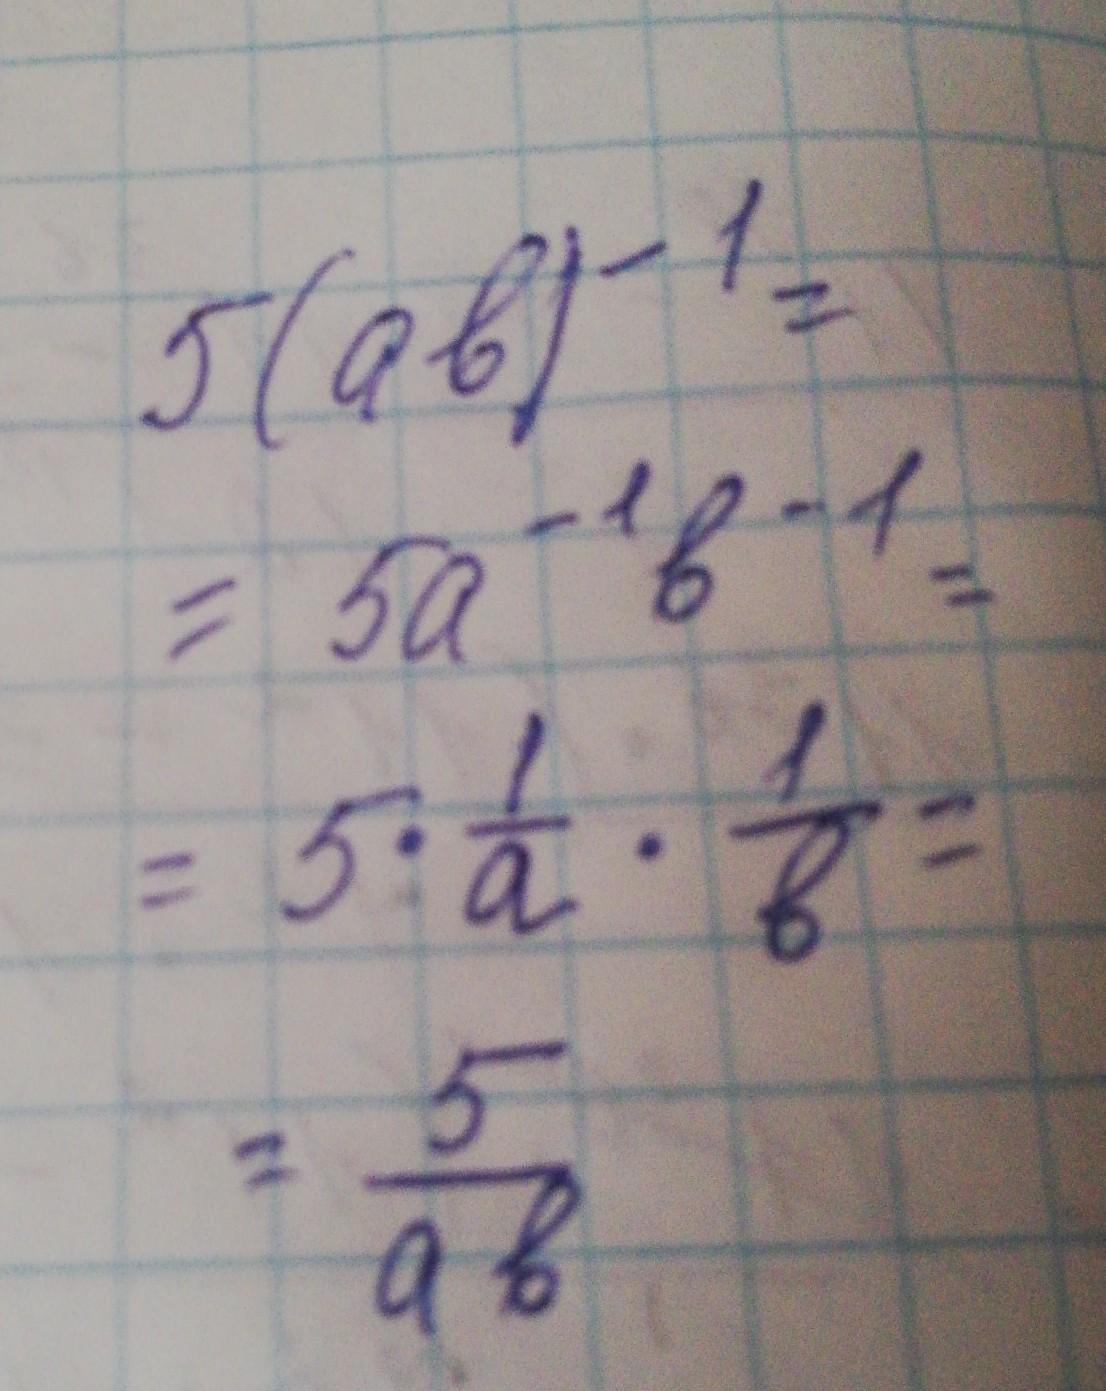 5(ab)⁻¹ =
= 5a⁻¹b⁻¹ =
= 5 · 1/a · 1/b =
= 5/ab